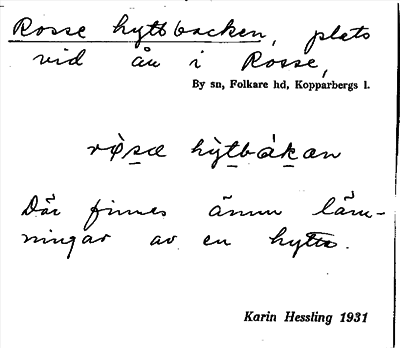 Rosse hyttbacken, plats
vid ån i Rosse,
By sn, Folkare hd, Kopparbergs l.
hỳtbàkan
Där finnes ännu läm-
ningar av en hytta.
Karin Hessling 1931